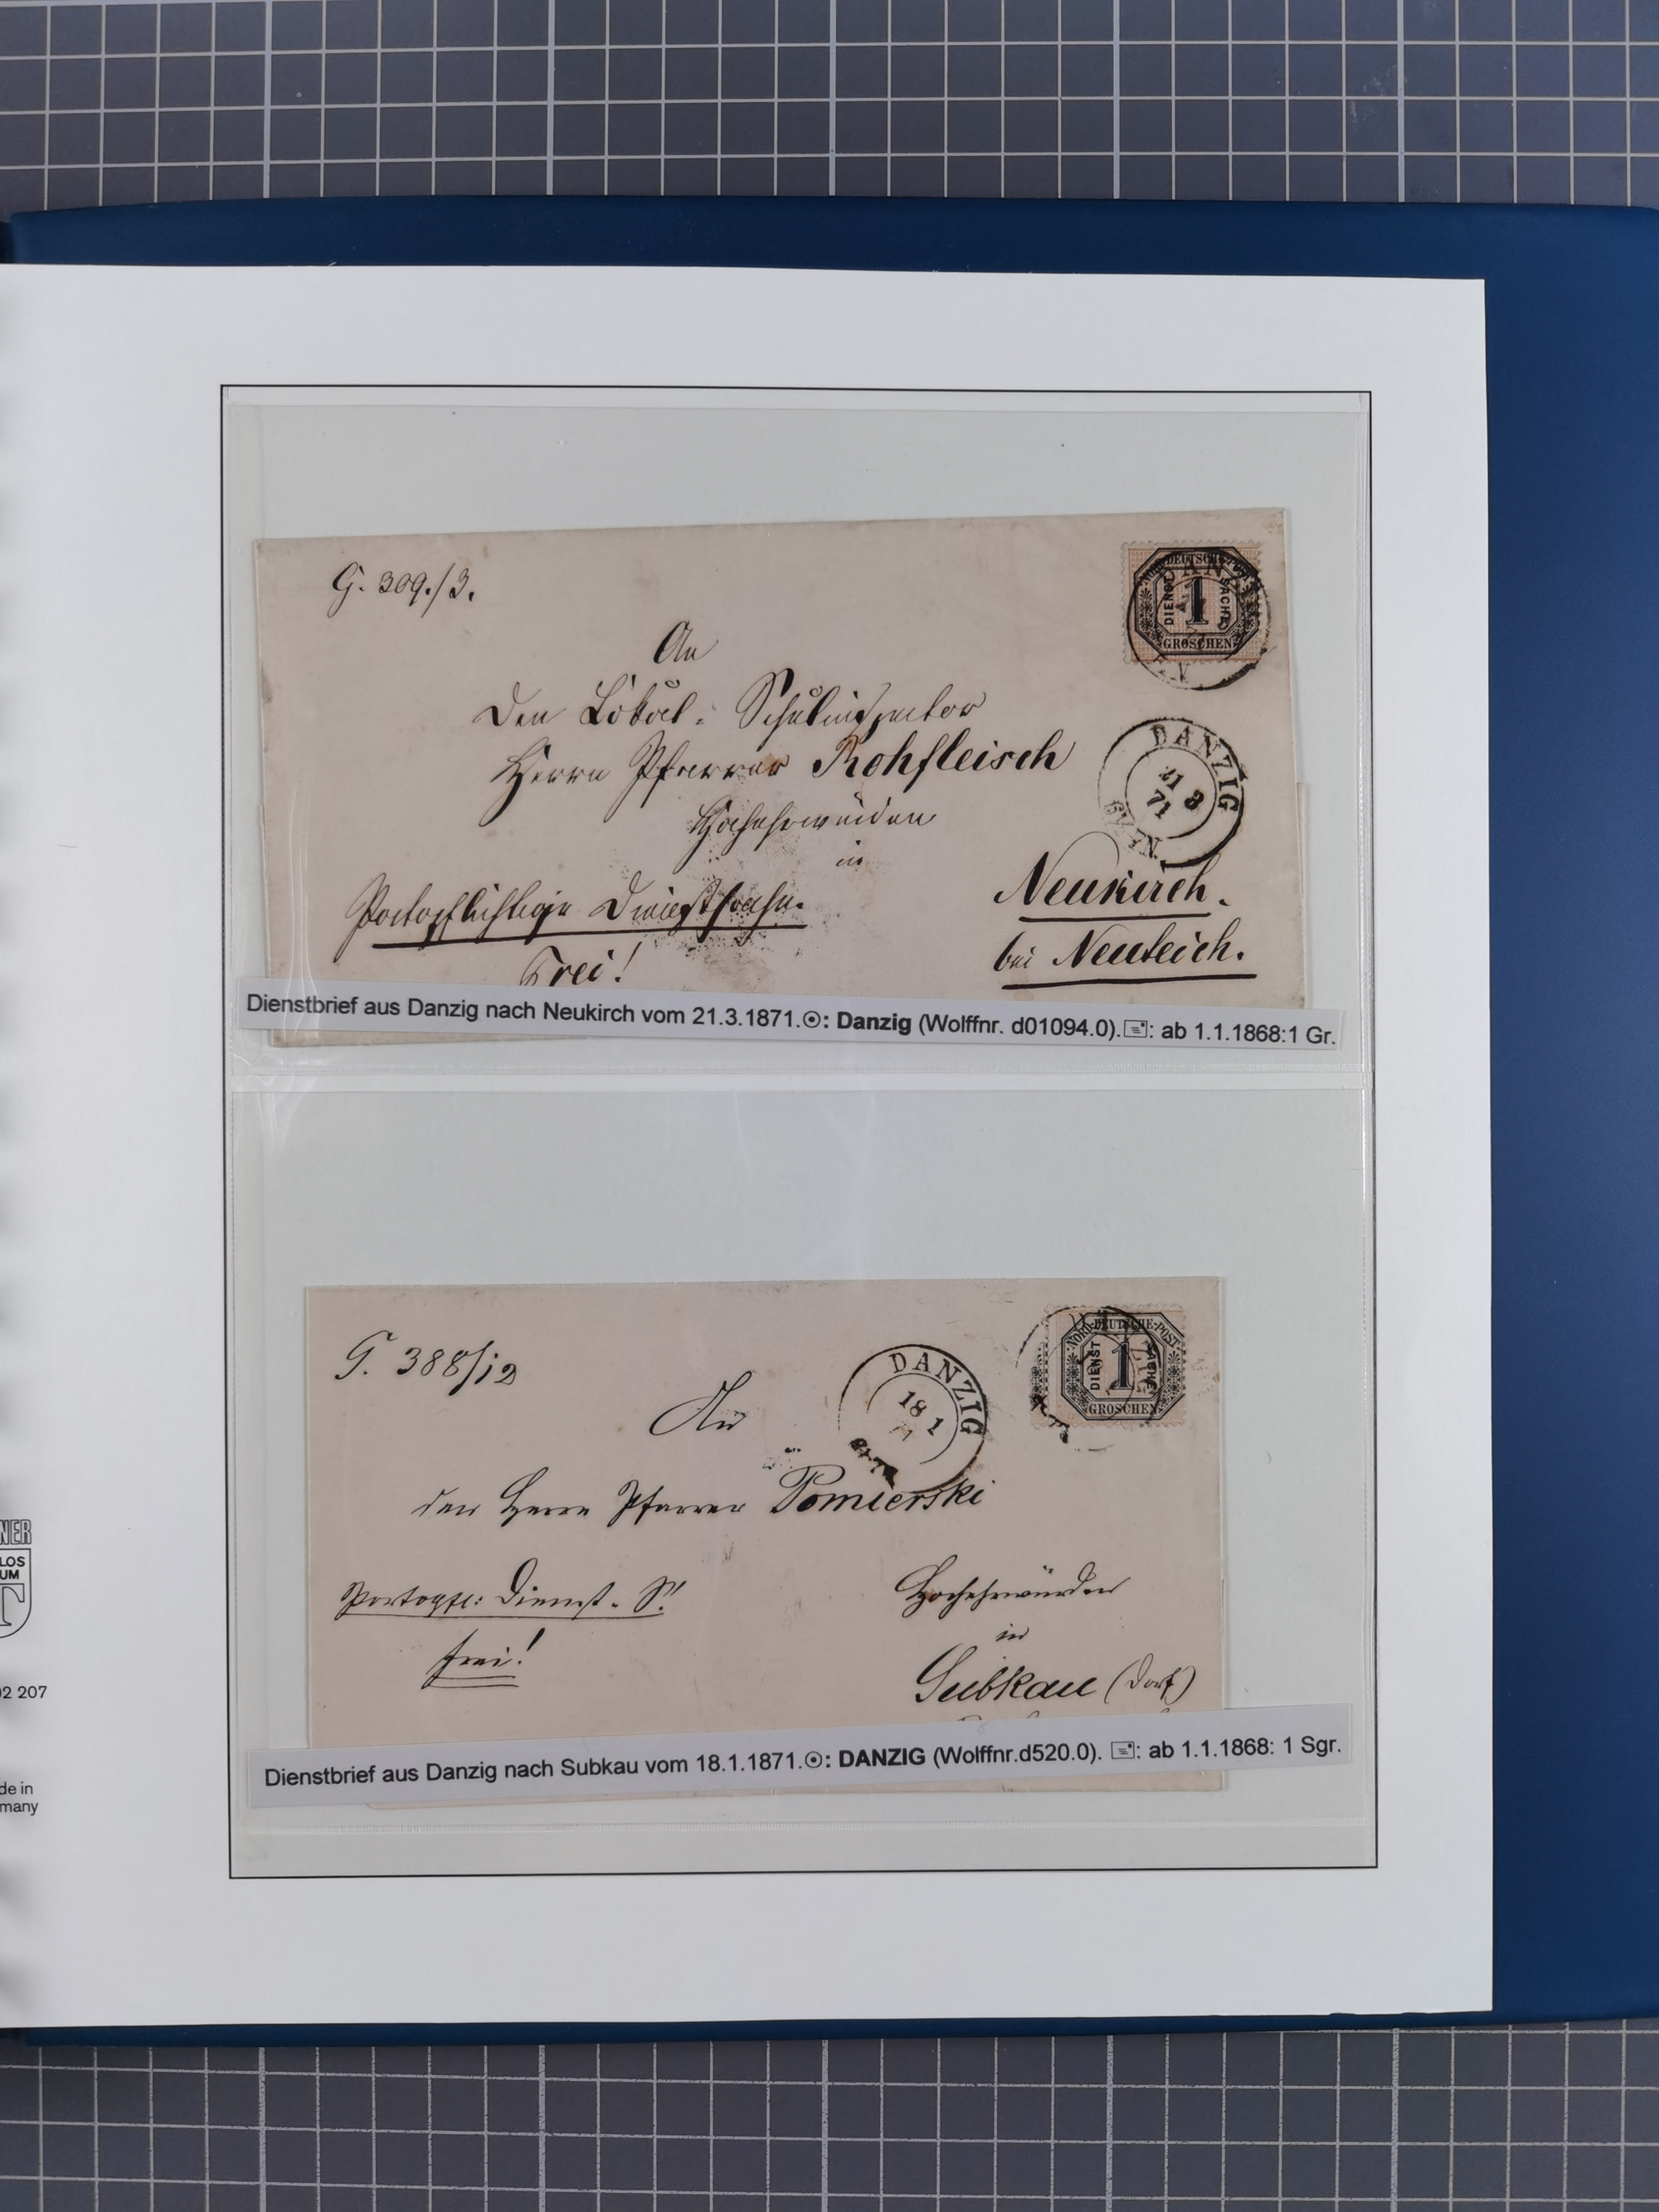 G. 309./3.
An
den Lokal-Schulinspector
Herrn Pfarrer Rohfleisch
Hochehrwürden
in
Neukirch.
bei Neuteich.
Portopflichtige Dienstsache.
Frei!
NORDDEUTSCHE POST
DIENST SACHE
1
GROSCHEN
DANZIG
21 3
71
Dienstbrief aus Danzig nach Neukirch vom 21.3.1871.⊙: Danzig (Wolffnr. d01094.0). : ab 1.1.1868:1 Gr.
G. 388/12
An
den Herrn Pfarrer Pomierski
Hochehrwürden
in
Subkau (Dorf)
Portopfl: Dienst-S!
frei!
DANZIG
18 1
NORDDEUTSCHE-POST
DIENST SACHE
1
GROSCHEN
Dienstbrief aus Danzig nach Subkau vom 18.1.1871.⊙: DANZIG (Wolffnr.d520.0). : ab 1.1.1868: 1 Sgr.
NER
LOS
UM
T
02 207
de in
many